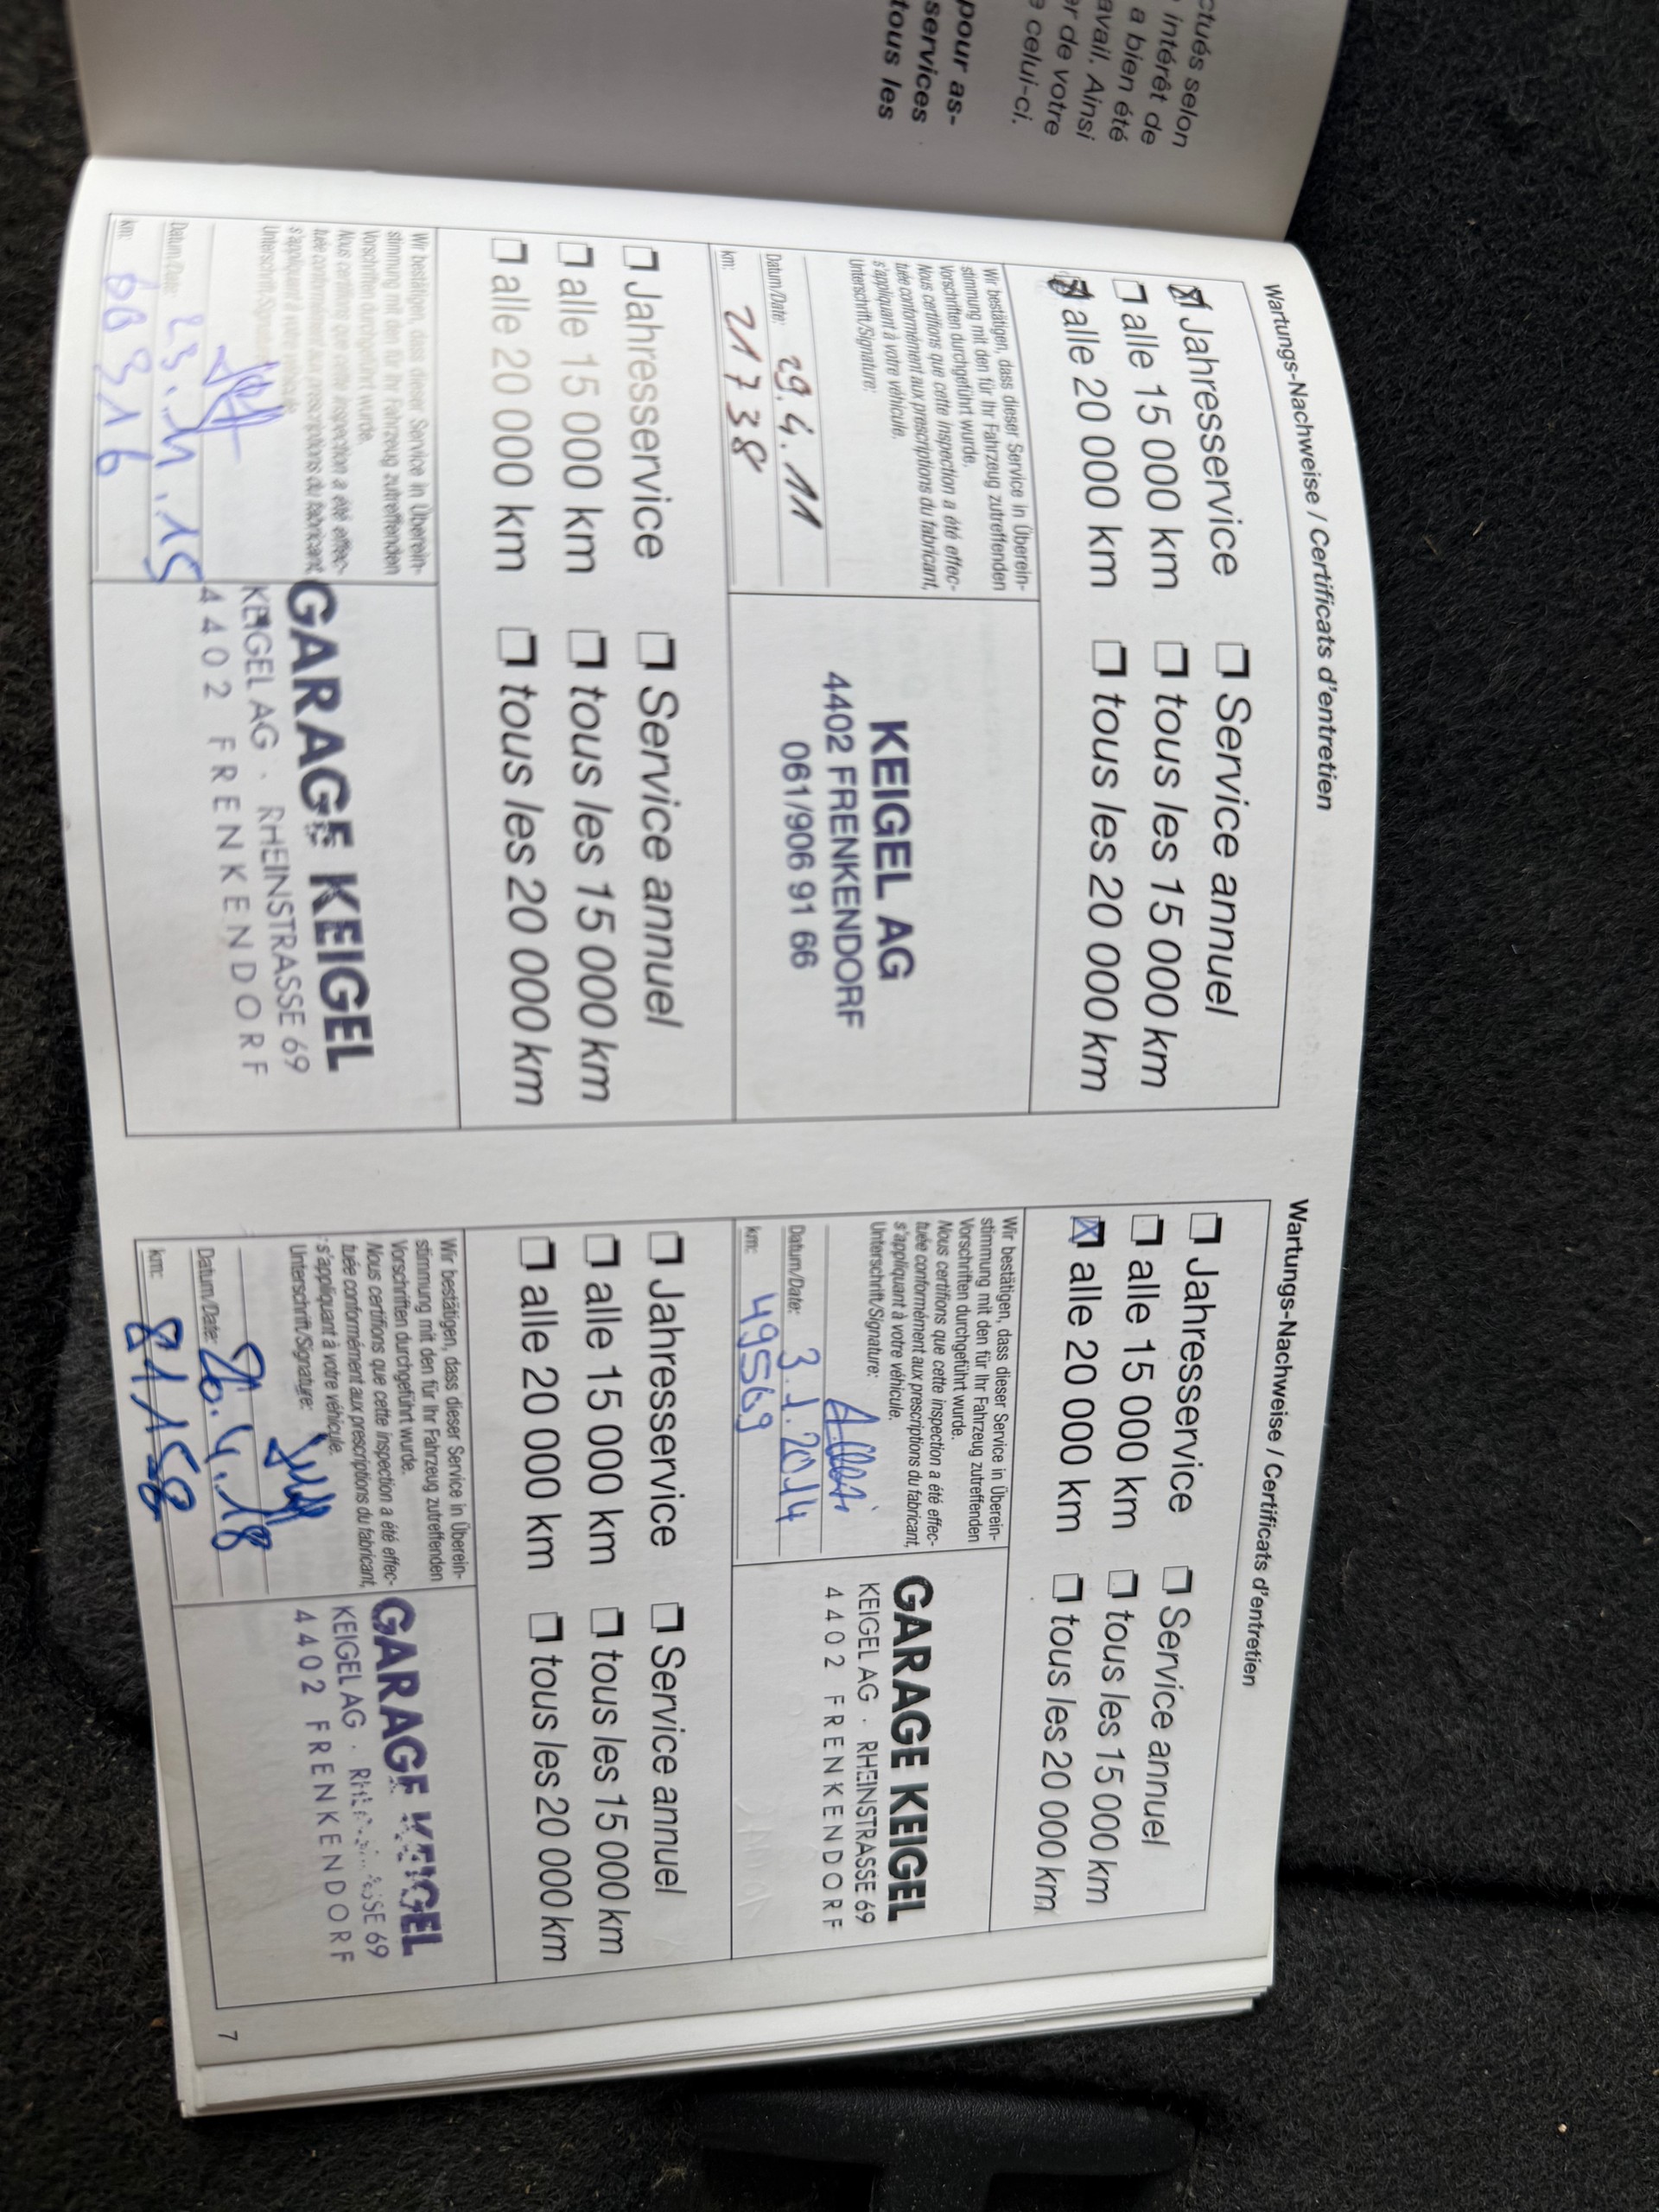 ctués selon
intérêt de
a bien été
avail. Ainsi
er de votre
celui-ci.
pour as-
services
tous les
Wartungs-Nachweise / Certificats d'entretien
☒ Jahresservice ☐ Service annuel
☐ alle 15 000 km ☐ tous les 15 000 km
☒ alle 20 000 km ☐ tous les 20 000 km
Wir bestätigen, dass dieser Service in Überein-
stimmung mit den für Ihr Fahrzeug zutreffenden
Vorschriften durchgeführt wurde.
Nous certifions que cette inspection a été effec-
tuée conformément aux prescriptions du fabricant,
s'appliquant à votre véhicule.
Unterschrift/Signature:
Datum/Date: 29.4.11
km: 21738
KEIGEL AG
4402 FRENKENDORF
061/906 91 66
☐ Jahresservice ☐ Service annuel
☐ alle 15 000 km ☐ tous les 15 000 km
☐ alle 20 000 km ☐ tous les 20 000 km
Wir bestätigen, dass dieser Service in Überein-
stimmung mit den für Ihr Fahrzeug zutreffenden
Vorschriften durchgeführt wurde.
Nous certifions que cette inspection a été effec-
tuée conformément aux prescriptions du fabricant,
s'appliquant à votre véhicule.
Unterschrift/Signature:
Datum/Date:
km:
GARAGE KEIGEL
KEIGEL AG · RHEINSTRASSE 69
4402 FRENKENDORF
Wartungs-Nachweise / Certificats d'entretien
☐ Jahresservice ☐ Service annuel
☐ alle 15 000 km ☐ tous les 15 000 km
☒ alle 20 000 km ☐ tous les 20 000 km
Wir bestätigen, dass dieser Service in Überein-
stimmung mit den für Ihr Fahrzeug zutreffenden
Vorschriften durchgeführt wurde.
Nous certifions que cette inspection a été effec-
tuée conformément aux prescriptions du fabricant,
s'appliquant à votre véhicule.
Unterschrift/Signature:
Datum/Date: 3.1.2014
km: 49569
GARAGE KEIGEL
KEIGEL AG · RHEINSTRASSE 69
4402 FRENKENDORF
☐ Jahresservice ☐ Service annuel
☐ alle 15 000 km ☐ tous les 15 000 km
☐ alle 20 000 km ☐ tous les 20 000 km
Wir bestätigen, dass dieser Service in Überein-
stimmung mit den für Ihr Fahrzeug zutreffenden
Vorschriften durchgeführt wurde.
Nous certifions que cette inspection a été effec-
tuée conformément aux prescriptions du fabricant,
s'appliquant à votre véhicule.
Unterschrift/Signature:
Datum/Date: 26.4.18
km: 81158
GARAGE KEIGEL
KEIGEL AG · RHEINSTRASSE 69
4402 FRENKENDORF
7